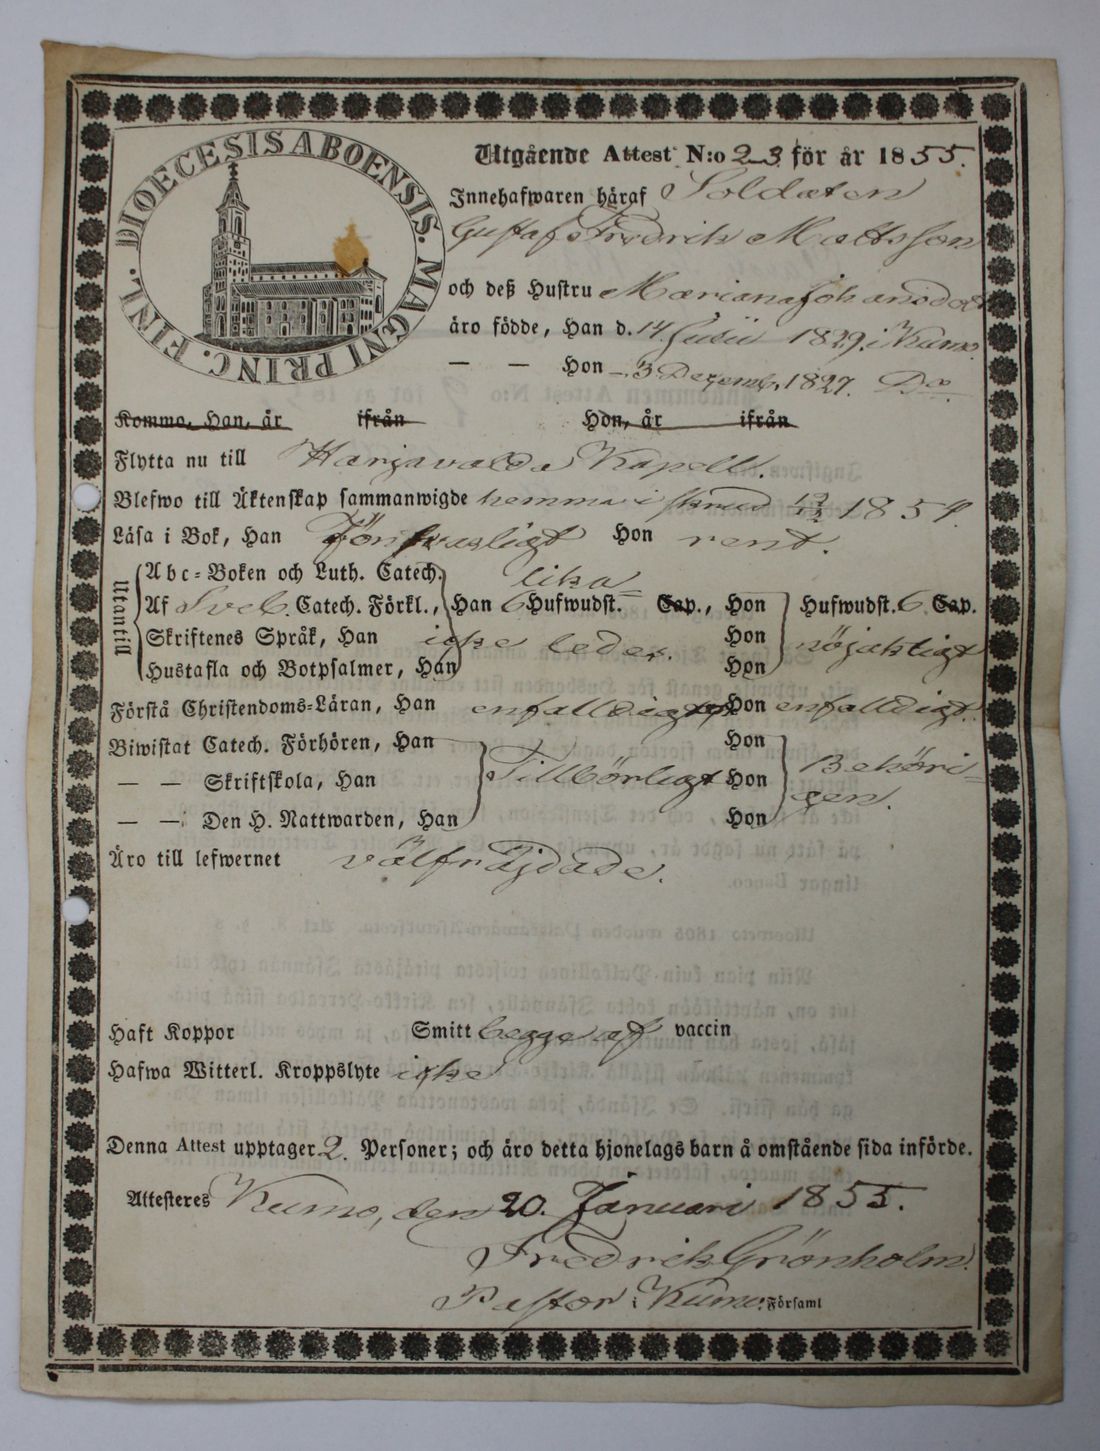 DIOECESIS ABOENSIS. MAGNI PRINC. FINL.
Utgående Attest N:o 23 för år 1855.
Innehafwaren häraf Soldaten
Gustaf Fredrik Mattsson
och deß Hustru Mariana Johansdotr
äro födde, Han d. 14 Junii 1829. i Kumo.
— — Hon — 3 Decemb. 1827. Do
Komma, Han, år ifrån Hon, år ifrån
Flytta nu till Harjavalda Kapell.
Blefwo till Äktenskap sammanwigde hemma i 1854.
Läsa i Bok, Han Förswarligt Hon rent.
Utantill
Abc-Boken och Luth. Catech. lika
Af Sveb. Catech. Förkl., Han 6 Hufwudst. Cap., Hon Hufwudst. 6 Cap.
Skriftenes Språk, Han icke Hon nöjaktigt
Hustafla och Botpsalmer, Han Hon
Förstå Christendoms-Läran, Han enfalldigt Hon enfalldigt.
Biwistat Catech. Förhören, Han Hon
— — Skriftskola, Han Tillbörligt Hon Behöri-
gen.
— — Den H. Nattwarden, Han Hon
Äro till lefwernet välfräjdade.
Haft Koppor Smitt begge af vaccin
Hafwa Witterl. Kroppslyte icke
Denna Attest upptager 2. Personer; och äro detta hjonelags barn å omstående sida införde.
Attesteres Kumo, den 20. Januari 1855.
Fredrik Grönholm.
Pastor i Kumo Församl